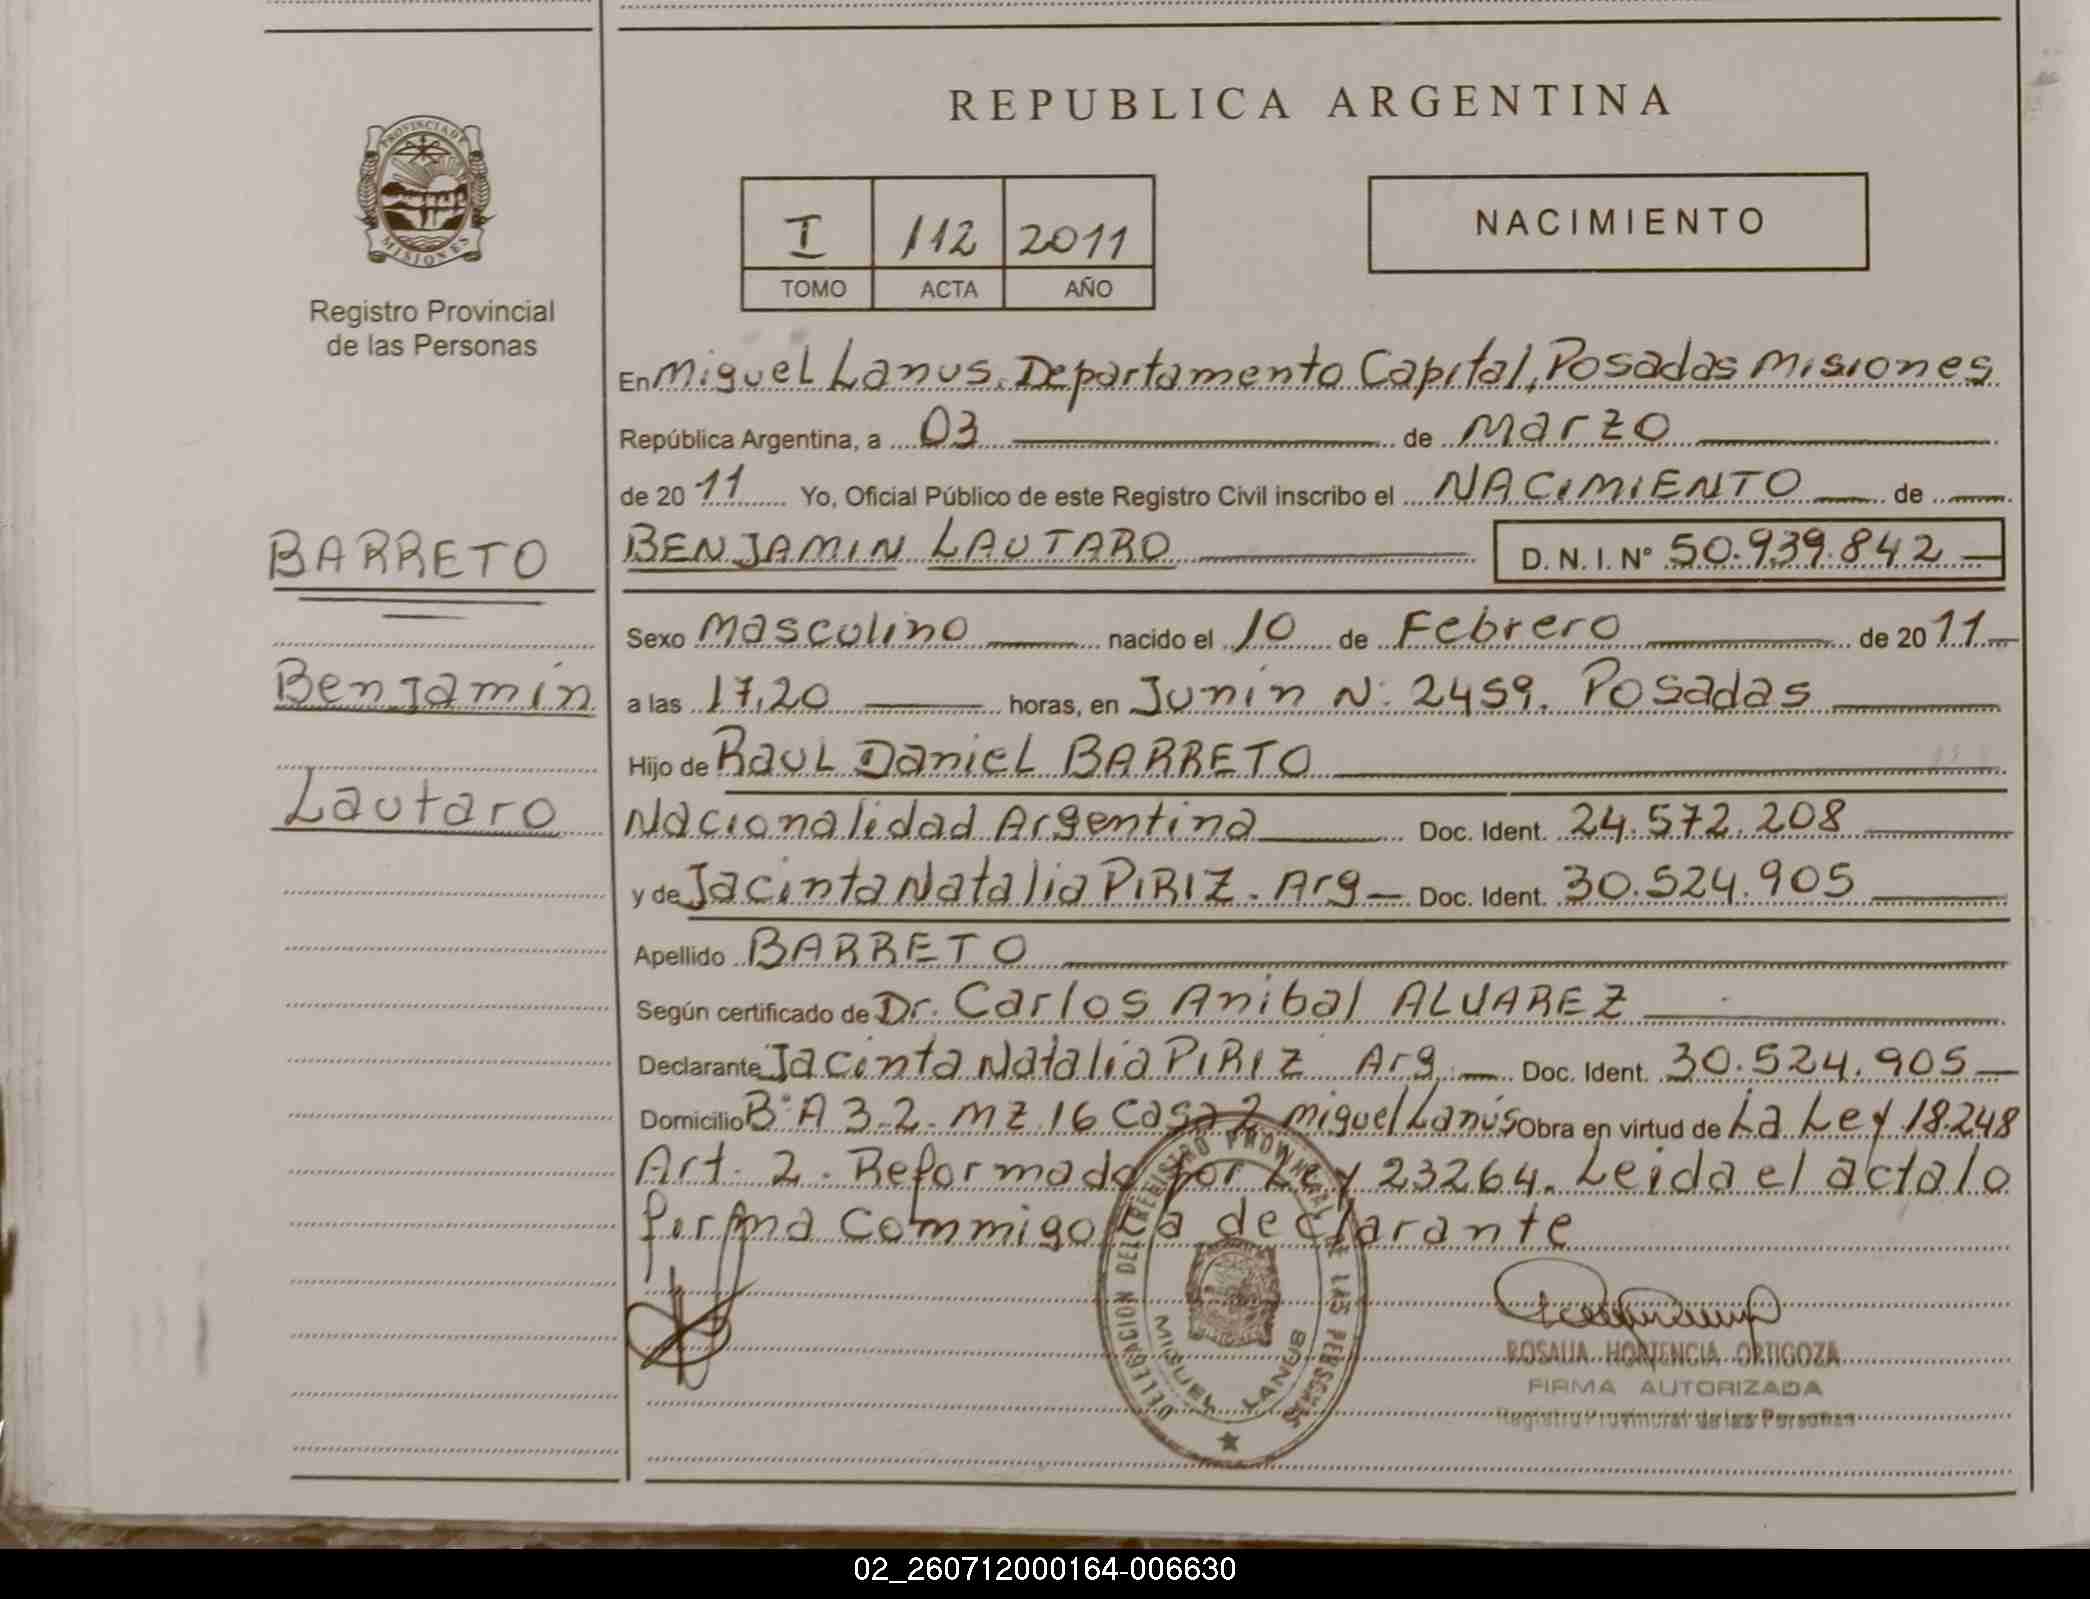 REPUBLICA ARGENTINA
PROVINCIA DE
MISIONES
Registro Provincial
de las Personas
I /12 2011
TOMO ACTA AÑO
NACIMIENTO
BARRETO
Benjamín
Lautaro
En Miguel Lanus. Departamento Capital, Posadas Misiones
República Argentina, a 03 de Marzo
de 2011 Yo, Oficial Público de este Registro Civil inscribo el NACIMIENTO de
BENJAMIN LAUTARO D. N. I. N° 50.939.842
Sexo Masculino nacido el 10 de Febrero de 2011
a las 17,20 horas, en Junin N: 2459. Posadas
Hijo de Raul Daniel BARRETO
Nacionalidad Argentina Doc. Ident. 24.572.208
y de Jacinta Natalia PIRIZ. Arg Doc. Ident. 30.524.905
Apellido BARRETO
Según certificado de Dr. Carlos Anibal ALVAREZ
Declarante Jacinta Natalia PIRIZ Arg. Doc. Ident. 30.524.905
Domicilio B° A 3.2. MZ 16 Casa 2 Miguel Lanús Obra en virtud de La Ley 18.248
Art. 2. Reformado por Ley 23264. Leida el acta lo
firma commigo La declarante
DELEGACION DEL REGISTRO PROVINCIAL DE LAS PERSONAS
MIGUEL LANUS
ROSALIA HORTENCIA ORTIGOZA
FIRMA AUTORIZADA
Registro Provincial de las Personas
02_260712000164-006630